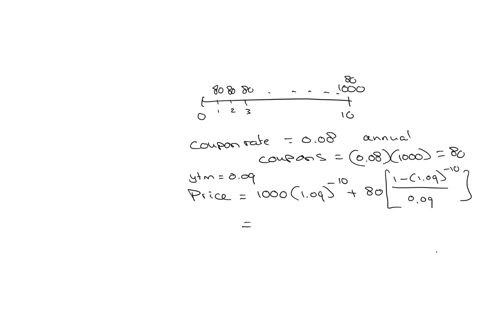 80 80 80 . - - - 80
1000
0 1 2 3 10
coupon rate = 0.08 annual
coupons = (0.08)(1000) = 80
ytm = 0.09
Price = 1000(1.09)^-10 + 80[1-(1.09)^-10 / 0.09]
=